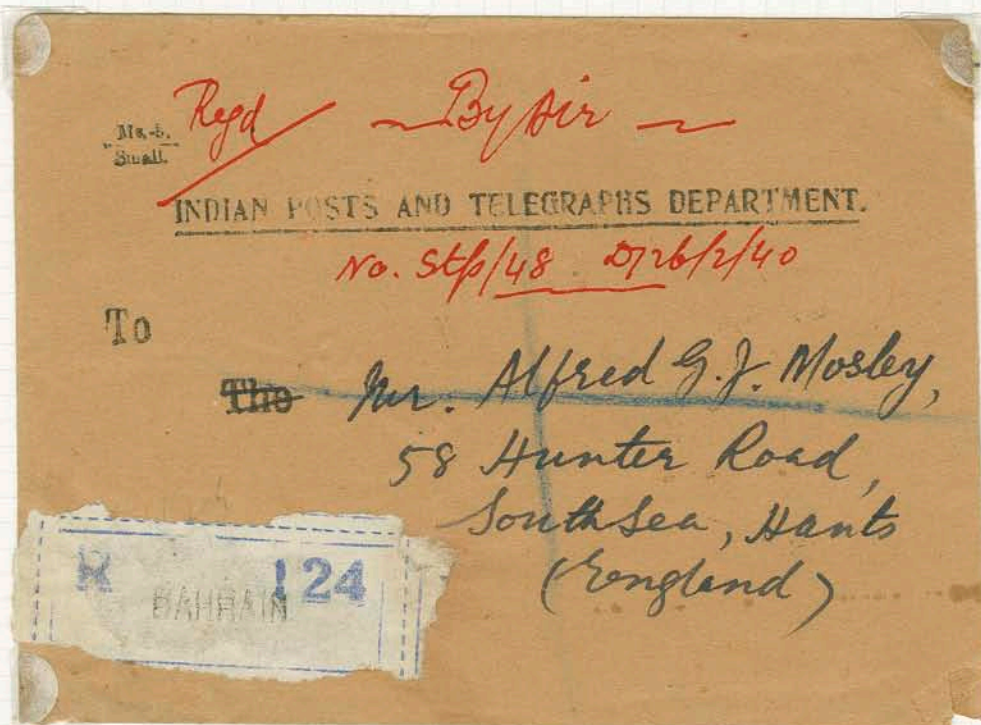 Regd By Air
Ms.-5.
Small.
INDIAN POSTS AND TELEGRAPHS DEPARTMENT.
No. Stp/48 D/26/2/40
To
The Mr. Alfred G. J. Mosley,
58 Hunter Road,
Southsea, Hants
(England)
R 124
BAHRAIN